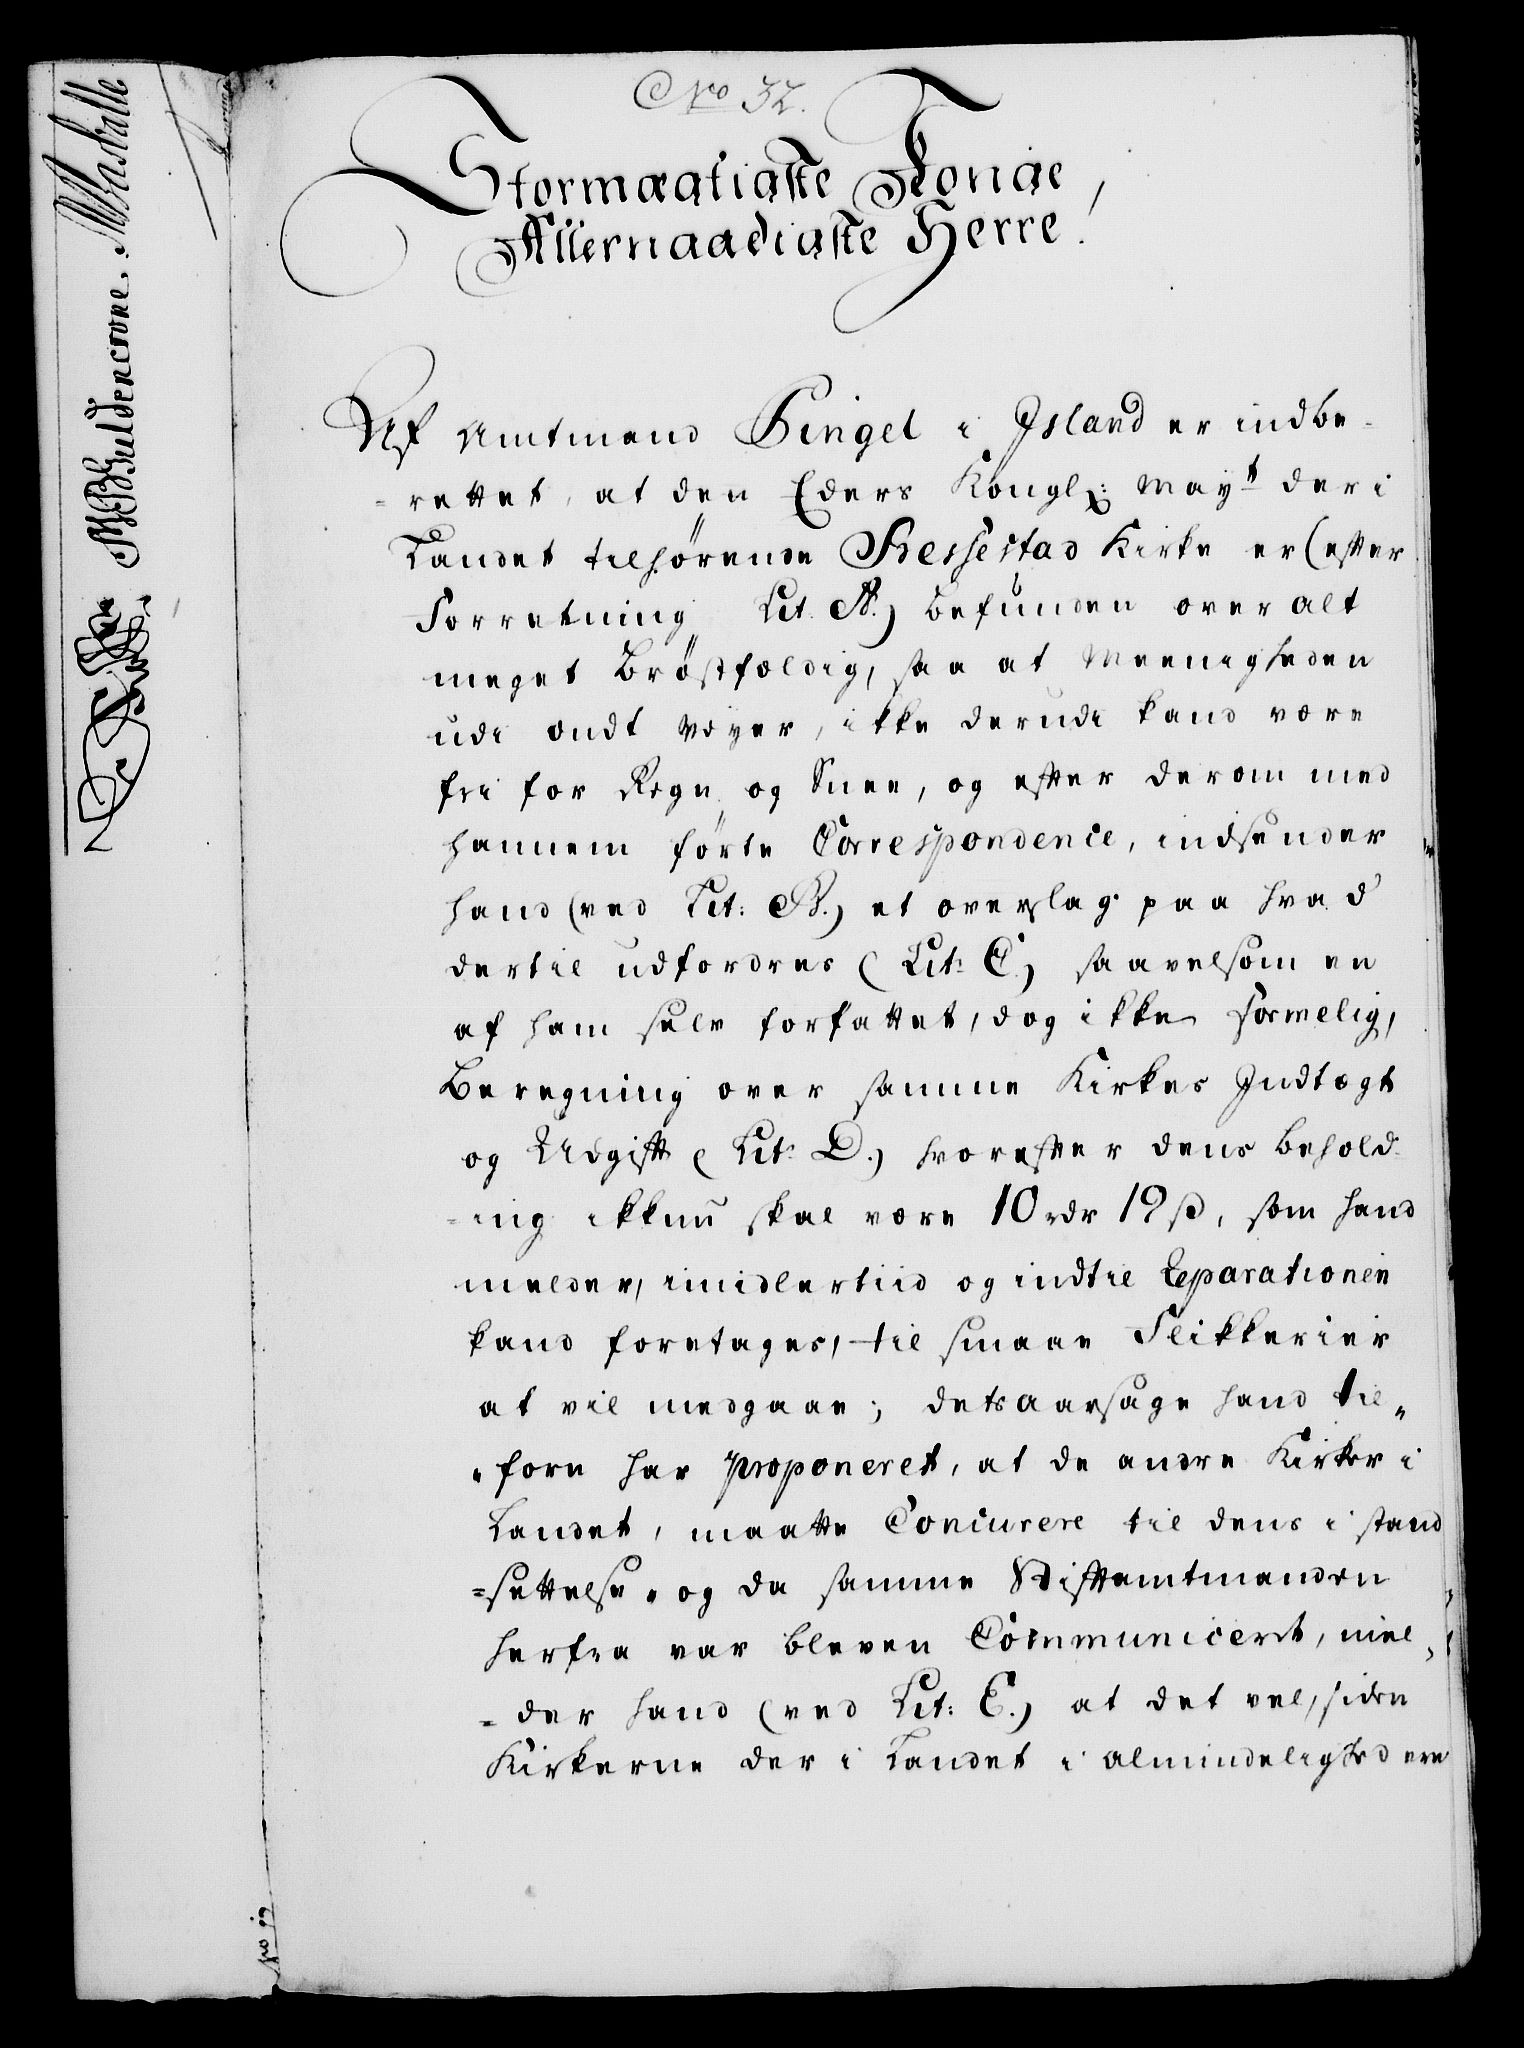 No 32.
Stormægtigste Konge,
Allernaadigste Herre!
Af Amtmand Pingel i Jsland er indbe-
-rettet, at den Eders Kongl: Mayt der i
Landet tilhørende Bessestad Kirke er (efter
Forretning Lit. A.) befunden over alt
meget Brøstfældig, saa at Meenigheden
udi ondt Veyer, ikke derudi kand være
fri for Regn og Snee, og efter derom med
hannem førte Correspondence, indsender
hand (ved Lit: B.) et overslag paa hvad
dertil udfordres (Lit: C.) saavelsom en
af ham selv forfattet, dog ikke formelig,
Beregning over samme Kirkes Indtægt
og Udgift (Lit: D.) hvorefter dens behold-
-ing ikkun skal være 10 rdr 19 s, som hand
melder, imidlertiid og indtil Reparationen
kand foretages, til smaae Flikkerier
at vil medgaae; dets aarsage hand til-
-forn har proponeret, at de andre Kirker i
Landet, maatte Concurere til dens i stand
-settelse, og da samme Stiftamtmanden
herfra var bleven Communiceret, mel-
-der hand (ved Lit: E.) at det vel, siden
Kirkerne der i Landet i almindelighed ere
Guldencrone.
No 32